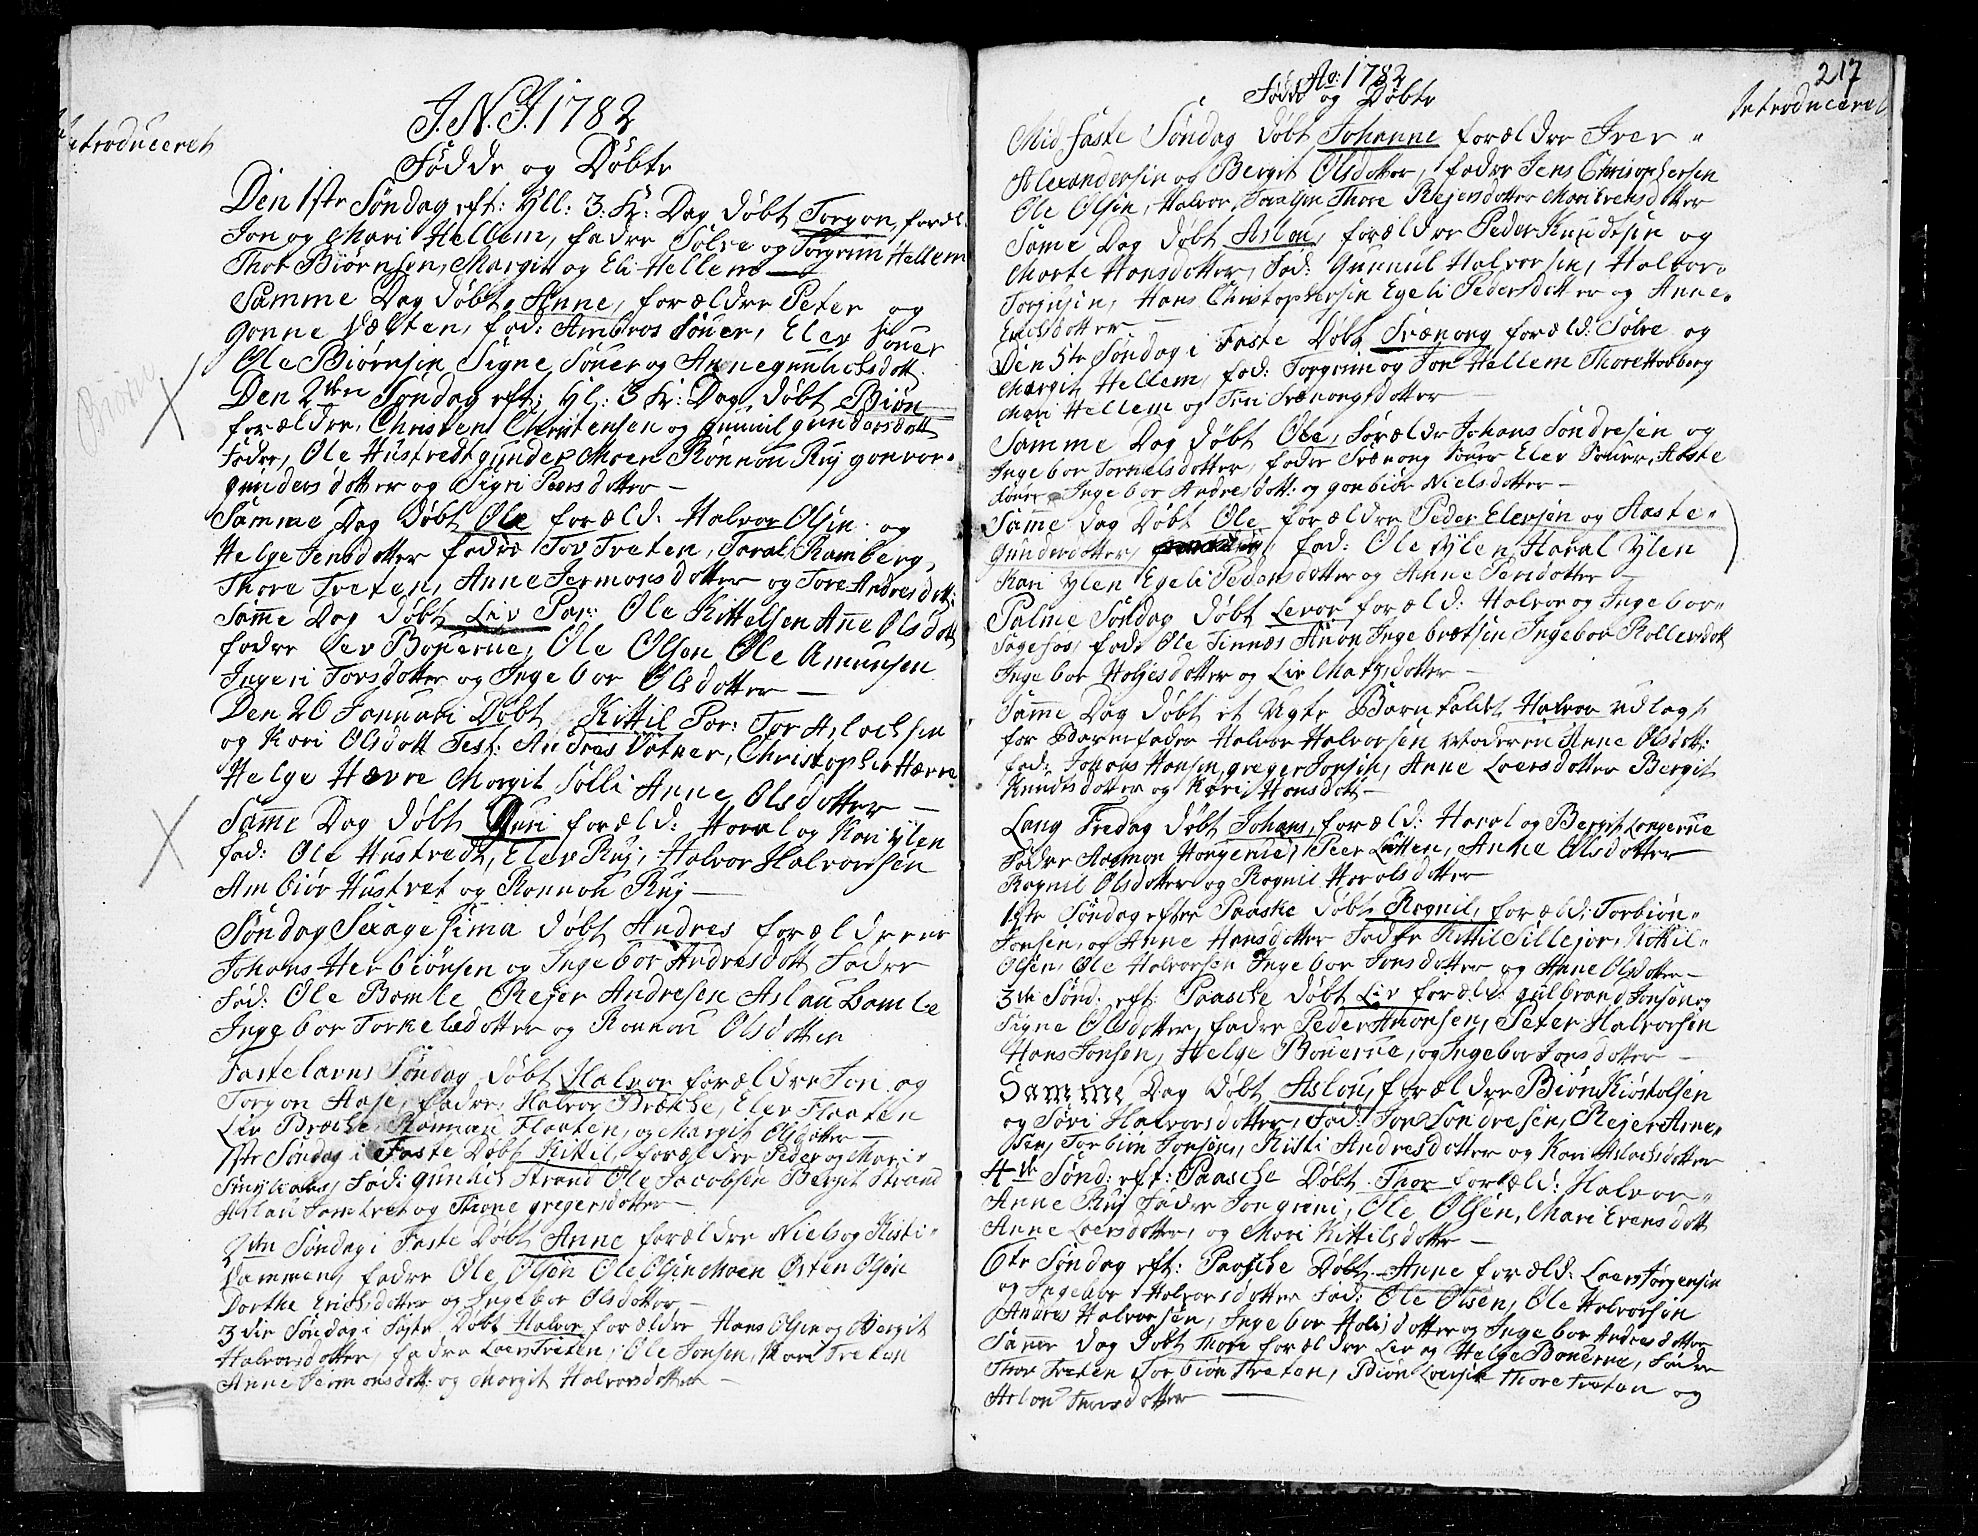 Introduceret
J. N. J. 1782
Födde og Döbte
Den 1ste Söndag eft: Hll: 3. K: Dag döbt Torgon, foræl:
Jon og Mari Hellem, fadre Sölve og Torgrim Hellem
Thob Biörnsen, Margit og Eli Hellem
Samme Dag döbt Anne, forældre Peter og
Gonne Vælten, fad: Ambros Söuer, Elev Söuer
Ole Biörnsen Signe Söuer og Anne gunlichsdott
Biön
Den 2den Söndag eft: Hl: 3 K: Dag döbt Biön
forældre, Christen Christensen og gunnil gundersdott
Fadre, Ole Hustvedt gunder Moen Rönnou Ruj gonvor
gundersdotter og Sigri Peersdotter
Samme Dag döbt Ole foræld: Halvor Olsen og
Helge Jensdotter fadre Tov Treten, Taral Ramberg,
Thore Treten, Anne Jermonsdotter og Tore Andresdott:
Samme Dag döbt Liv Par: Ole Kittelsen Anne Olsdott
fadre Lev Bouerne, Ole Olsen Ole Amunsen
Ingeri Torsdotter og Ingebor Olsdotter
Den 20 Januari Döbt Kittil Par: Tor Aslachsen
og Kari Olsdott Test: Andres Votner, Christopher Hærre
Helge Hævre Margit Solli Anne Olsdotter
Samme Dag döbt Guri foræld: Haral og Kari Ylen
fad: Ole Hustvedt, Elev Ruj, Halvor Halvorsen
Ambiör Hustvet og Ronnou Ruj
Söndag Sexagesima döbt Andres forældrene
Johans Herbiönsen og Ingebor Andresdott Fadre
Fad: Ole Bomle Rejer Andresen Aslau Bomle
Ingebor Torkelsdotter og Ronnou Olsdotter
Fastelavns Söndag döbt Halvor forældre Jon og
Torgon Aase, fadre, Halvor Brække, Elev Flaaten
Liv Bræche Ronnou Flaaten, og Margit Olsdotter
1ste Söndag i Faste Döbt Kittel, forældre Peder og Mari
fad: gunnich Strand Ole Jacobsen Bergit Strand
Aslau Jamtvet og Thone gregersdotter
2den Söndag i Faste Döbt Anne forældre Niels og Kisti
Dammen, fadre Ole Olsen Ole Olsen Moen Östen Olsen
Dorthe Erichsdotter og Ingebor Olsdotter
3die Söndag i Faste Döbt Halvor forældre Hans Olsen og Bergit
Halvorsdotter, fadre Loers Treten, Ole Jonsen, Kari Treten
Anne Jermonsdott: og Margit Halvorsdotter
217
Ao: 1782
Födde og Döbte
Introduceret
Mid faste Söndag döbt Johanne forældre Iver
Alexandersen og Bergit Olsdotter, fadre Jens Christophersen
Ole Olsen, Halvor Toralsen Thore Rejersdotter Mari Evensdotter
Same Dag döbt Aslou, forældre Peder Knudtsen og
Marte Hansdotter, Fad: Gunnul Halvorsen, Halvor
Torgusen, Hans Christophersen Egeli Pedersdotter og Anne
Erichsdotter
Den 5te Söndag i Faste Döbt Svænong foræld: Sölve og
Margit Hellem, fad: Torgrim og Jon Hellem Thore Hovberg
Mari Hellem og Turi Svænongsdotter
Samme Dag döbt Ole, forældre Johans Sondresen og
Ingebor Tornelsdotter, fadre Svænong Söuer Elev Söuer, Aaste
Söuer Ingebor Andresdott: og gonbiör Nielsdotter
Samme dag Döbt Ole forældre Peder Elevsen og Aaste
Gundersdotter, fad: Ole Ylen Haral Ylen
Kari Ylen Egeli Pedersdotter og Anne Persdotter
Palme Söndag döbt Levor foræld: Halvor og Ingebor
fad: Ole Tinnæs Anon Ingebretsen Ingebor Rollevsdott
Ingebor Holjesdotter og Liv Matzdotter
Samme Dag döbt et Ugte Barn kaldet Halvor udlagt
for Barnefader Halvor Halvorsen Moderen Anne Olsdott:
fad: Johans Hansen, greger Jonsen, Anne Loersdotter Bergit
Knudtsdotter og Kari Hansdott
Lang Fredag döbt Johans, foræld: Haral og Bergit Longerue
Fadre Aamon Hougerue, Peer Lötten, Anne Olsdotter
Rognil Olsdotter og Rognil Haralsdotter
1ste Söndag efter Paaske döbt Rognil, foræld: Torbiön
Jonsen, og Anne Hansdotter Fadre Kittil Sillejor, Kittil
Olsen, Ole Halvorsen Ingebor Jonsdotter og Anne Olsdotter
3die Sönd: eft: Paasche döbt Liv foræld: gulbrand Jonsen og
Signe Olsdotter, fadre Peder Amonsen, Peter Halvorsen
Hans Jonsen, Helge Bouerue, og Ingebor Jonsdotter
Samme Dag Döbt Aslou, forældre Biön Kiöstolsen
og Söri Halvorsdotter, Fad: Jon Sondresen, Rejer Arne
sen, Torbiön Jonsen, Kisti Andresdotter og Kari Aslachsdotter
4de Sönd: eft: Paasche Döbt Thor foræld: Halvor
Anne Ruj Fadre Jon greni, Ole Olsen, Mari Evensdott
Anne Loersdotter, og Mari Kittilsdotter
6te Söndag eft: Paasche Döbt Anne foræld: Loers Jörgensen
og Ingebor Halvorsdotter Fad: Ole Olsen, Ole Halvorsen
Andres Halvorsen, Ingebor Holisdotter og Ingebor Andresdotter
Samme dag Döbt Thore forældre Liv og Helge Bouerue, Fadre
Thor Treten Torbiön Treten, Biön Loersen Thore Treten og
Aslou Thorsdotter